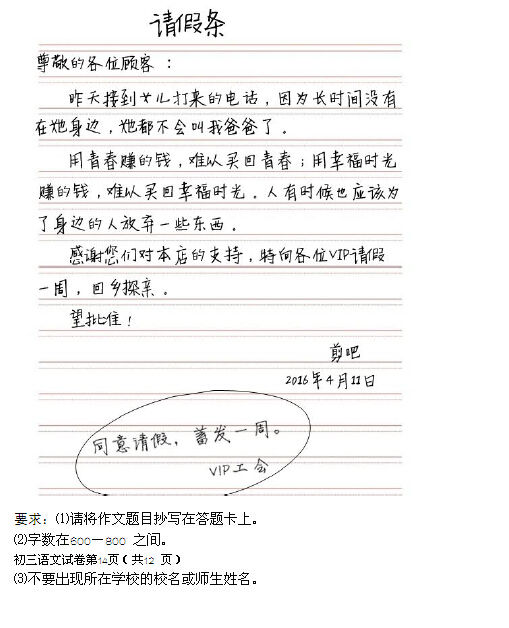 请假条
尊敬的各位顾客：
昨天接到女儿打来的电话，因为长时间没有
在她身边，她都不会叫我爸爸了。
用青春赚的钱，难以买回青春；用幸福时光
赚的钱，难以买回幸福时光。人有时候也应该为
了身边的人放弃一些东西。
感谢您们对本店的支持，特向各位VIP请假
一周，回乡探亲。
望批准！
剪吧
2016年4月11日
同意请假，蓄发一周。
VIP工会
要求：⑴请将作文题目抄写在答题卡上。
⑵字数在600—800 之间。
初三语文试卷第14页（共12 页）
⑶不要出现所在学校的校名或师生姓名。